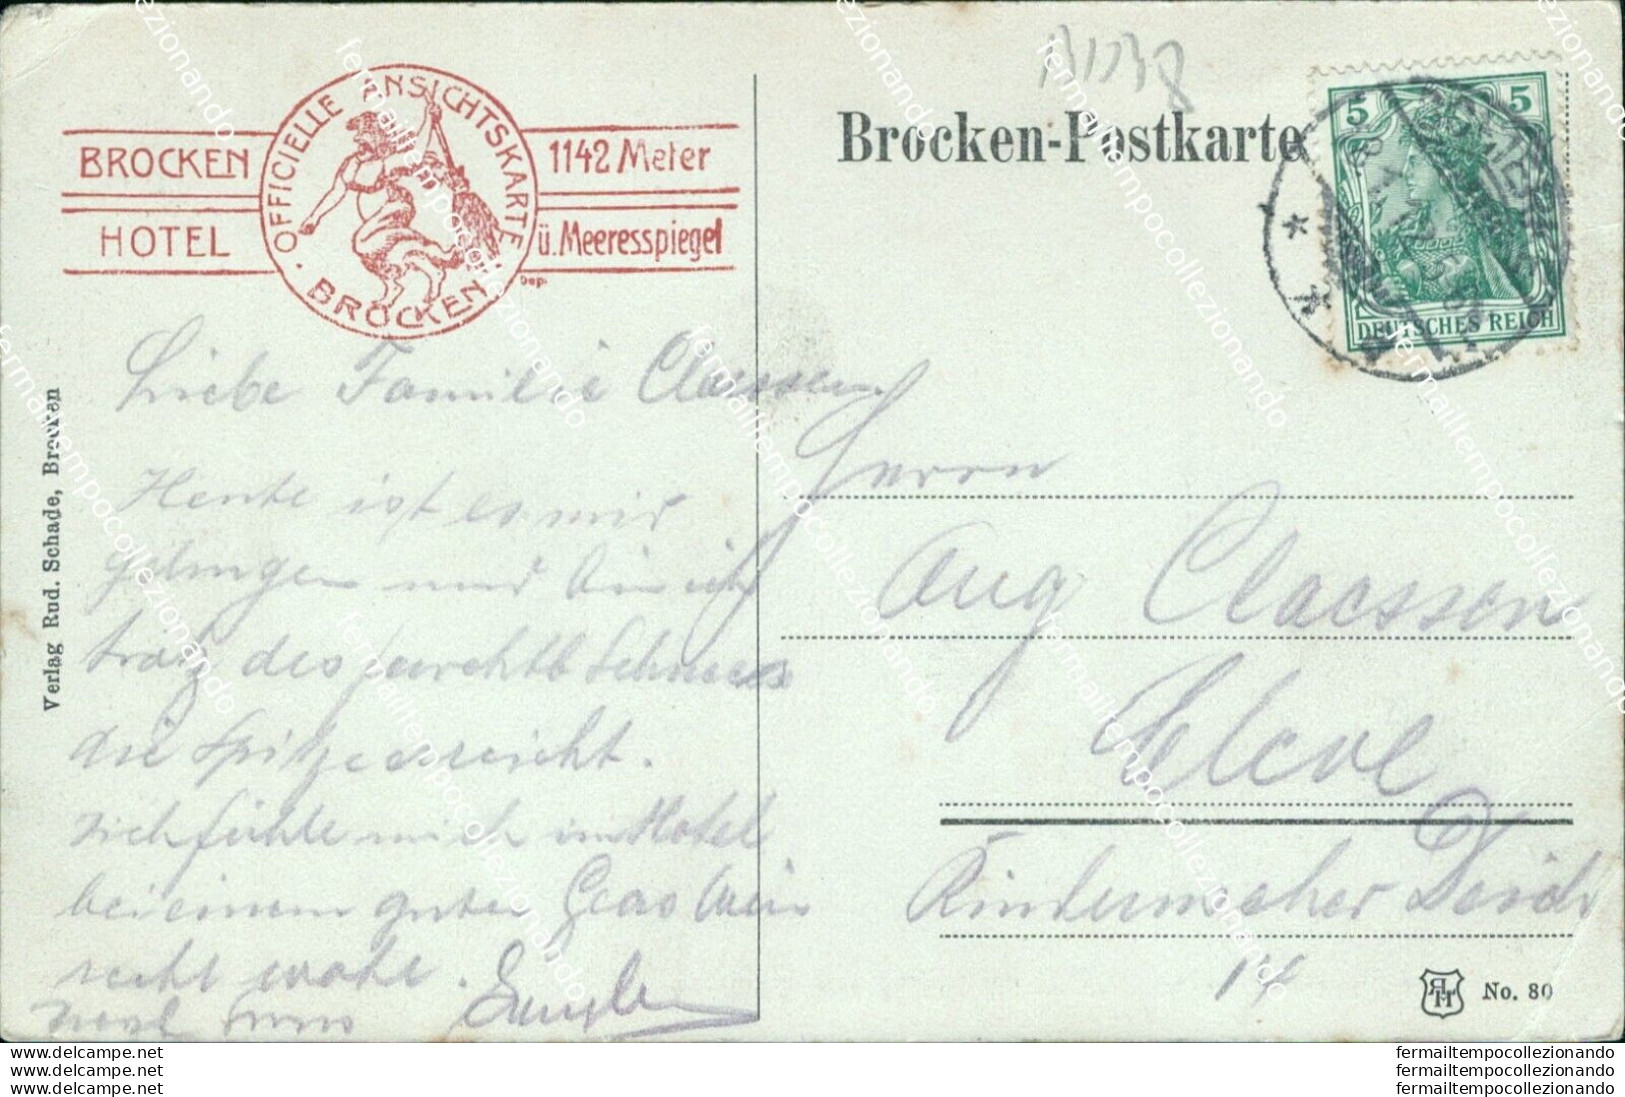 BROCKEN
HOTEL
OFFICIELLE ANSICHTSKARTE
BROCKEN
1142 Meter
ü. Meeresspiegel
Dep.
Brocken-Postkarte
5 5
DEUTSCHES REICH
Verlag Rud. Schade, Brocken
Liebe Familie Claessen
Heute ist es mir
gelungen und bin ich
trotz des furchtb Schnees
die Spitze erreicht.
Ich fühle mich im Hotel
bei einem guten Glas Wein
recht wohl.
Herrn
Aug Claessen
Cleve
Deich
14
No. 80
www.delcampe.net
www.delcampe.net
www.delcampe.net
fermailtempocollezionando
fermailtempocollezionando
fermailtempocollezionando